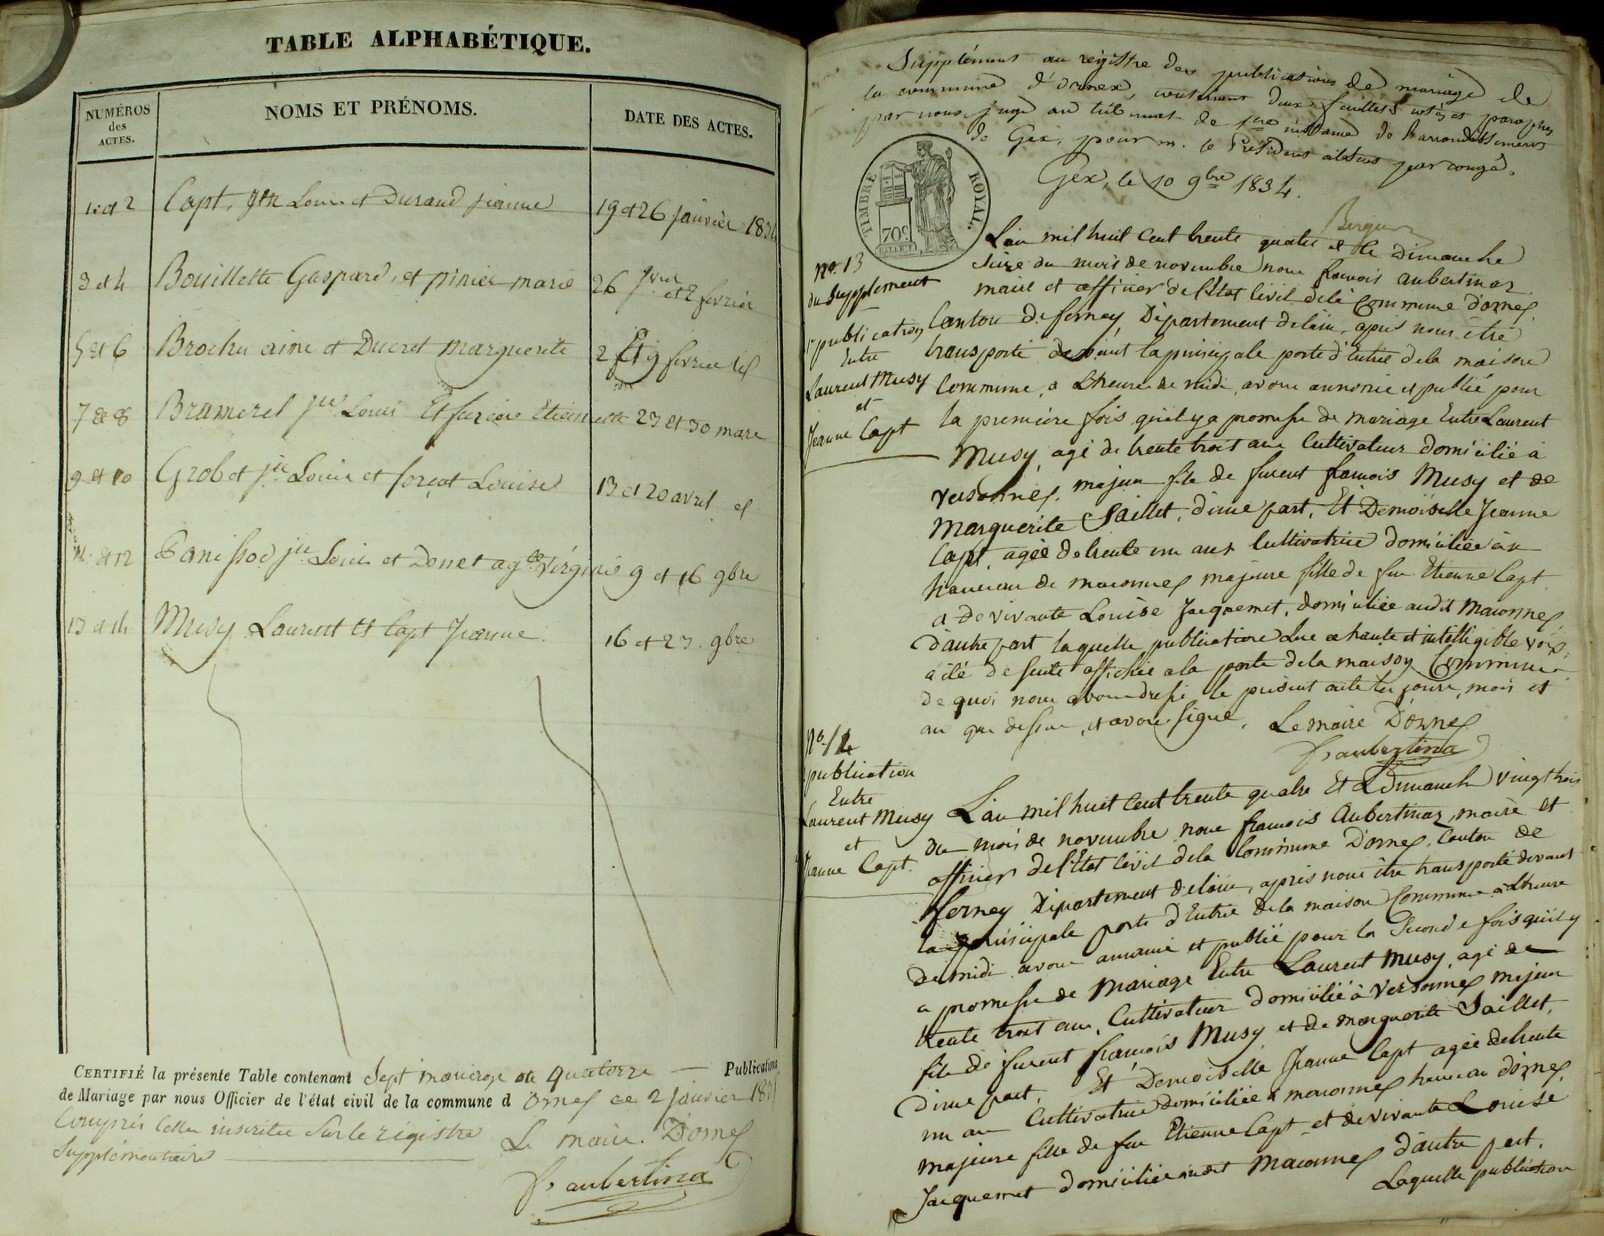 TABLE ALPHABÉTIQUE.
NUMÉROS
des
ACTES.
NOMS ET PRÉNOMS.
DATE DES ACTES.
1 et 2 Capt, Louis et Durand jeanne 19 et 26 janvier 1834
3 et 4 Bouillette Gaspard, et pinier marie 26 jvier et 2 fevrier
5 et 6 Brochu aimé et Ducret marguerite 2 et 9 fevrier
7 et 8 Bramerel Louis Et Etiennette 23 et 30 mars
9 et 10 Grobet Louis et forçat Louise 13 et 20 avril
11 et 12 Panissod jn Louis et Donet virginie 9 et 16 9bre
13 et 14 Musy Laurent Et Capt Jeanne. 16 et 23. 9bre
CERTIFIÉ la présente Table contenant Sept mariage et quatorze — Publications
de Mariage par nous Officier de l'état civil de la commune d'Ornex ce 2 janvier 1835
Compris celles inscrites sur le régistre
Supplémentaire
Le maire D'ornex
f. aubertinaz
Supplément au régistre des publications de mariage de
la commune d'Ornex, contenant deux feuillets cotés et paraphés
par nous juge au tribunal de 1ere instance de l'arrondissement
de Gex, pour m. le Président absent par congé.
Gex, le 10 9bre 1834.
TIMBRE ROYAL
70c
No. 13
du Supplement
1e publication
Entre
Laurent Musy
et
Jeanne Capt
L'an mil huit Cent trente quatre et le Dimanche
Seize du mois de novembre nous françois aubertinaz
maire et officier de l'Etat Civil de la Commune d'ornex,
Canton de ferney, Département de l'ain, après nous être
transporté devant la principale porte d'entrée de la maison
Commune, a L'heure de midi, avons annoncé et publié pour
la première fois qu'il y a promesse de mariage Entre Laurent
Musy, agé de trente trois ans Cultivateur domicilié à
Versonnex, majeur fils de furent françois Musy et de
Marguerite Saillet, d'une part, Et Demoiselle Jeanne
Capt, agée de trente un ans Cultivatrice domiciliée au
hameau de maconnex majeure fille de feu Etienne Capt
et de vivante Louise Jacquemet, domiciliée audit Maconnex
D'autre part laquelle publication lue a haute et intelligible voix,
a été de suite affichée a la porte de la maison Commune
De quoi nous avons dressé le présent acte les jours, mois et
an que dessus, et avons signé. Le maire D'ornex
f. aubertinaz
No. 14
publication
Entre
Laurent Musy
et
Jeanne Capt.
L'an mil huit Cent trente quatre Et Le Dimanche vingt trois
du mois de novembre nous françois Aubertinaz, maire et
officier de l'Etat Civil de la Commune D'ornex, Canton de
ferney, Département de l'ain, après nous être transporté devant
la principale porte d'Entrée de la maison Commune a L'heure
de midi avons annoncé et publié pour la Seconde fois qu'il y
a promesse de Mariage Entre Laurent Musy, agé de
trente trois ans, Cultivateur domicilié à Versonnex majeur
fils de furent françois Musy et de marguerite Saillet,
d'une part, Et Demoiselle Jeanne Capt agée de trente
un an Cultivatrice domiciliée a maconnex hameau d'ornex,
majeure fille de feu Etienne Capt et de vivante Louise
Jacquemet domiciliée audit Maconnex D'autre part.
Laquelle publication